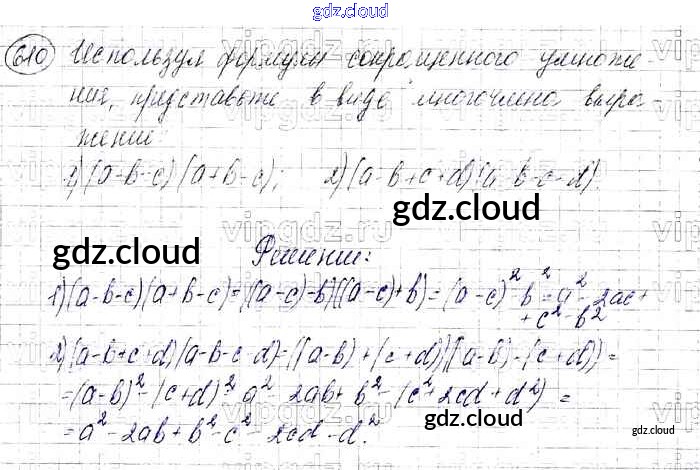 gdz.cloud
610 Используя формулы сокращенного умноже
ния, представьте в виде многочлена выра-
жение:
1) (a-b-c)(a+b-c); 2) (a-b+c+d)(a-b-c-d)
gdz.cloud
gdz.cloud
Решение:
1) (a-b-c)(a+b-c)=((a-c)-b)((a-c)+b)=(a-c)²-b²=a²-2ac+
+c²-b²
2) (a-b+c+d)(a-b-c-d)=((a-b)+(c+d))((a-b)-(c+d))=
=(a-b)²-(c+d)²=a²-2ab+b²-(c²+2cd+d²)=
gdz.cloud
=a²-2ab+b²-c²-2cd-d².
gdz.cloud